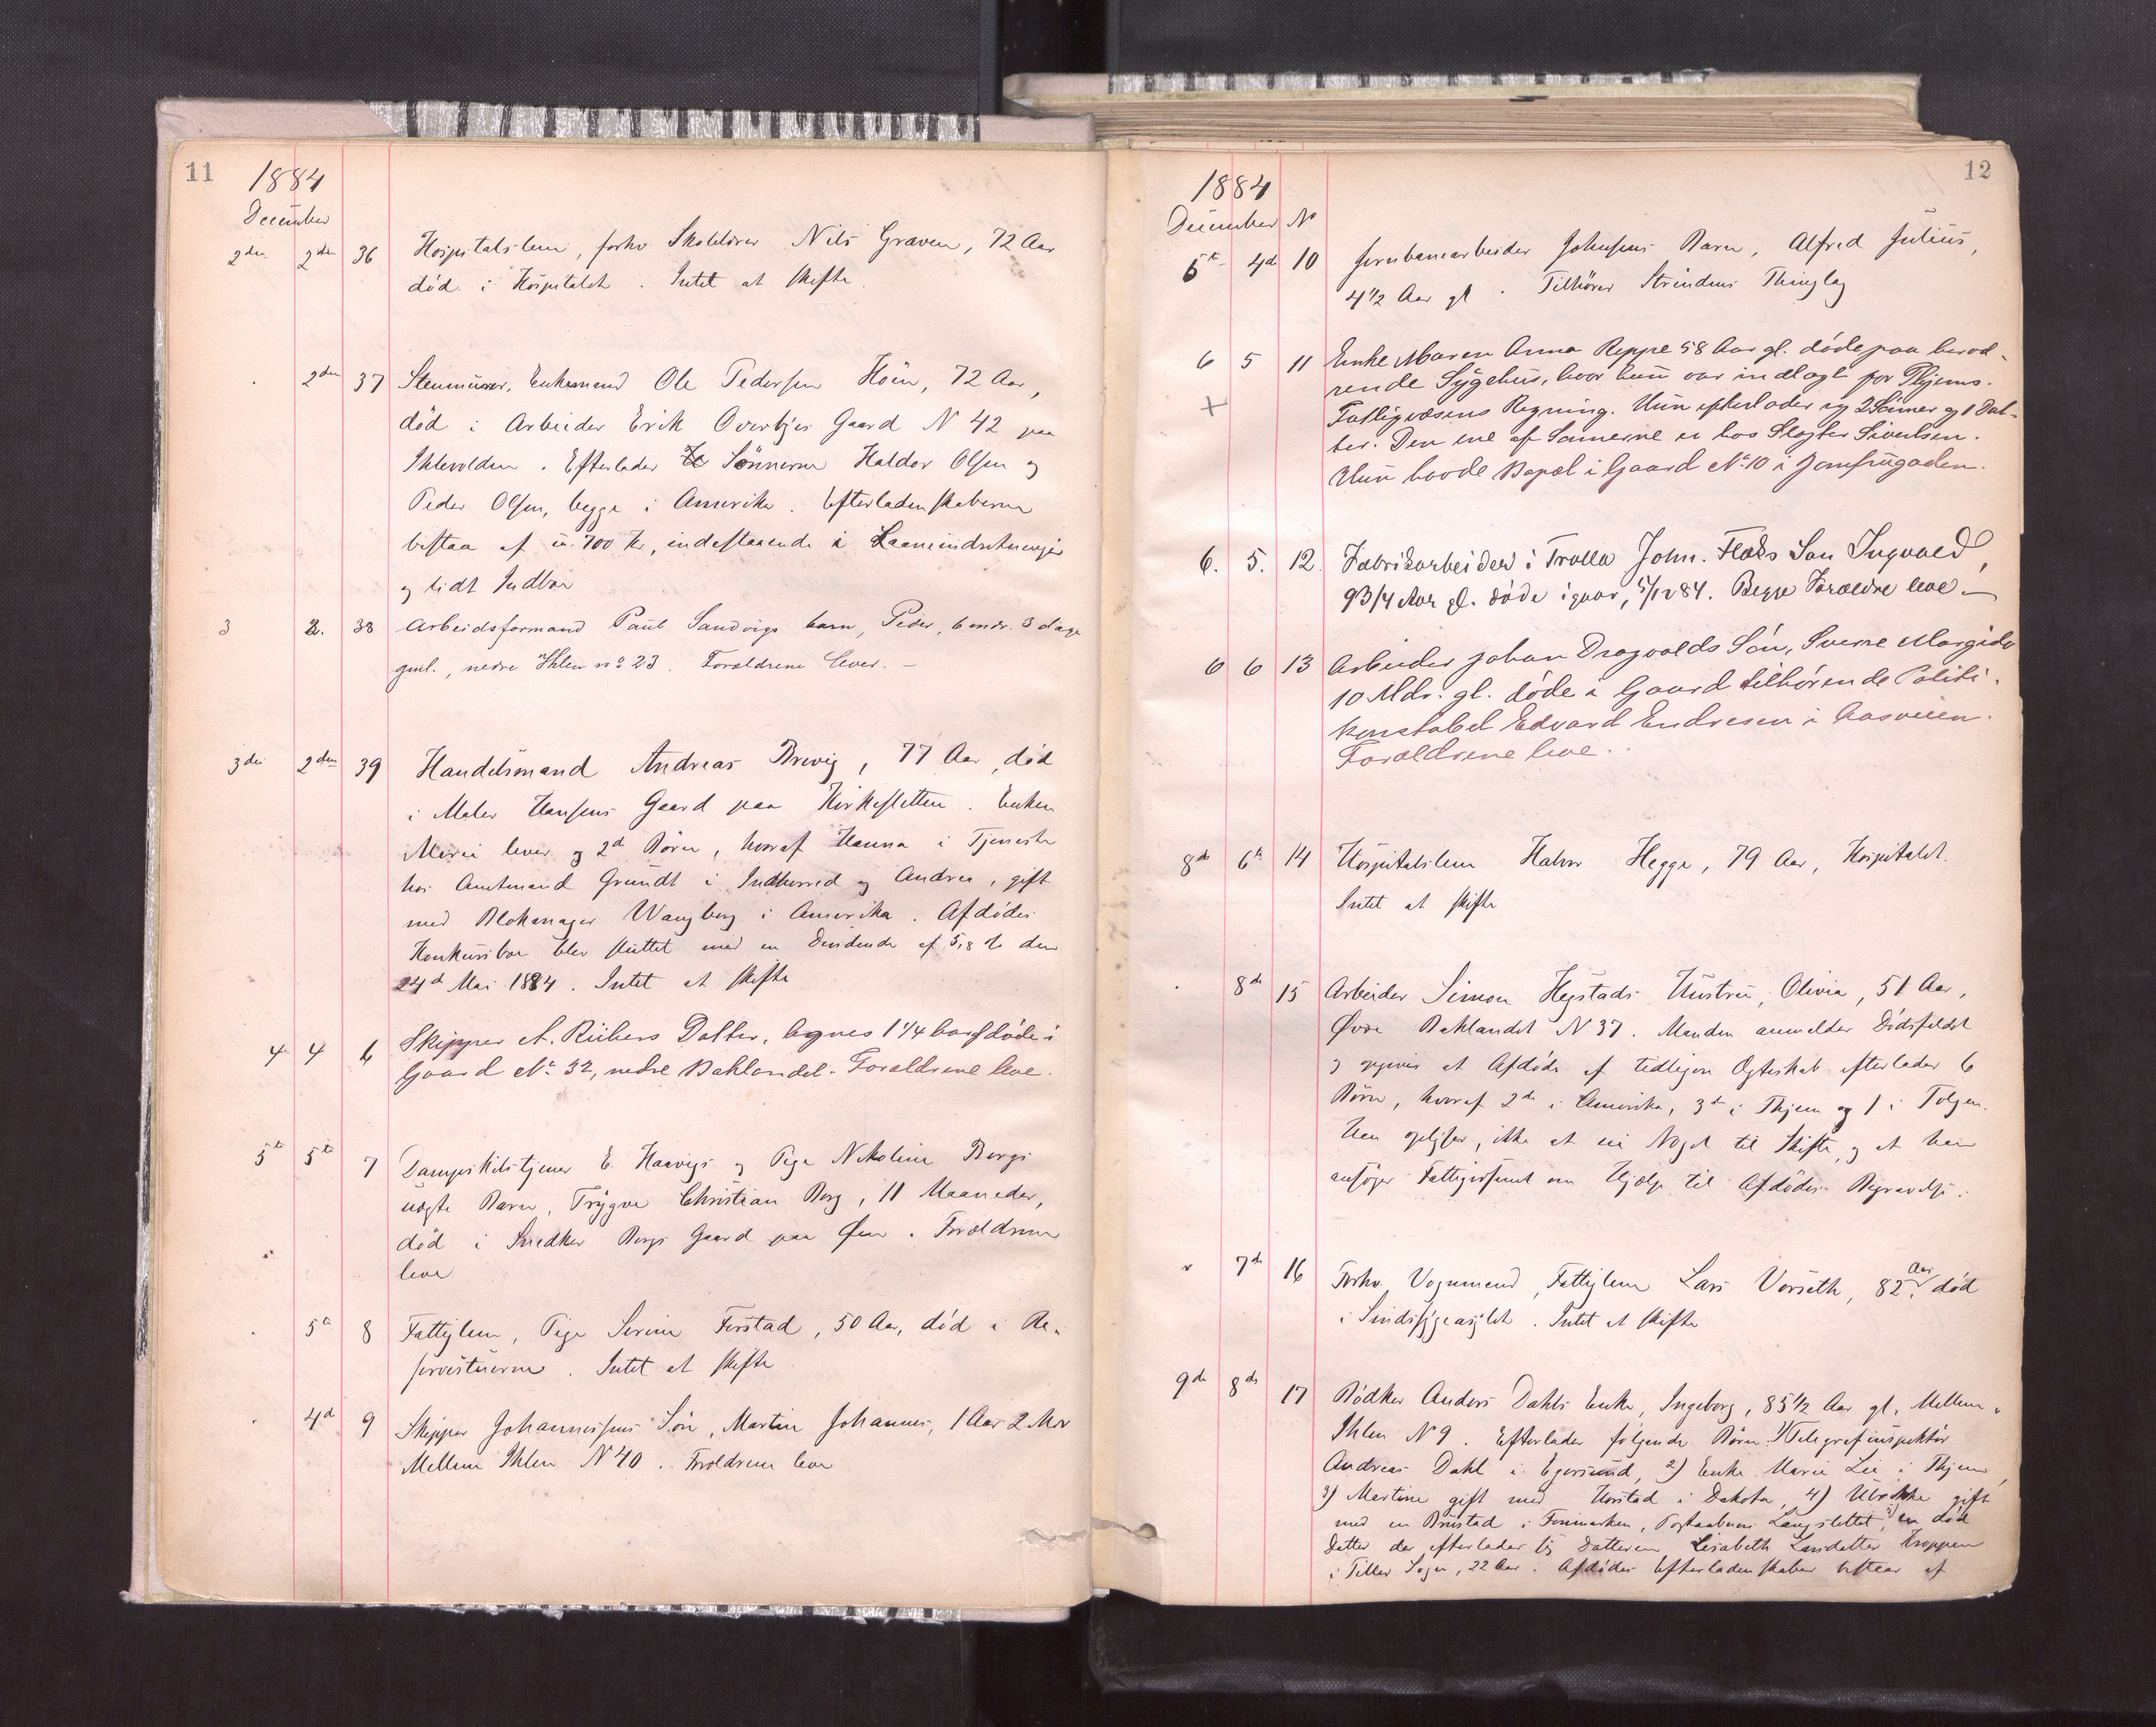 11
1884
December
2den 2den 36 Hospitalslem, forhv. Skolelærer Nils Graven, 72 Aar
død i Hospitalet. Intet at skifte.
2den 37 Stenmurer, Enkemand Ole Pedersen Höin, 72 Aar,
død i Arbeider Erik Overbjes Gaard N 42 paa
Ihlevolden. Efterlader Sönnerne Haldor Olsen og
Peder Olsen, begge i Amerika. Efterladenskaberne
bestaa af 700 Kr, indestaaende i Laaneindretninger
og lidt Indbo
3 2. 38 Arbeidsformand Paul Sandvigs barn, Peder, 6 mdr. 3 dage
gml., nedre Ihlen no 23. Forældrene lever. –
3die 2den 39 Handelsmand Andreas Brevig, 77 Aar, død
i Maler Hansens Gaard paa Kirkesletten. Enken
Marie lever og 2d Börn, hvoraf Hanna i Tjeneste
hos Amtmand Grundt i Indherred og Andrea, gift
med Blokmager Wangberg i Amerika. Afdødes
Konkursbo blev sluttet med en Dividende af 5,8 % den
24d Mai 1884. Intet at skifte
4 4 6 Skipper A. Riibers Datter, Agnes 1 1/4 Aar døde i
Gaard No 32, nedre Baklandet. Forældrene leve.
5te 5te 7 Dampskibstjener E. Haavigs og Pige Nikoline Bergs
uægte Barn, Trygve Christian Berg, 11 Maaneder,
død i Snedker Bergs Gaard paa Øen. Forældrene
leve
5te 8 Fattiglem, Pige Serine Ferstad, 50 Aar, død i Re-
servestuerne. Intet at skifte
4d 9 Skipper Johannessens Sön, Martin Johannes, 1 Aar 2 Mdr
Mellem Ihlen N 40. Forældrene leve
12
1884
December No
5te 4d 10 Jernbanearbeider Johnsens Barn, Alfred Julius,
4 1/2 Aar gl. Tilhörer Strindens Thinglag
6 5 11 Enke Maren Anna Reppe 58 Aar gl. døde paa hervæ-
rende Sygehus, hvor hun var indlagt for Thjems
Fattigvæsens Regning. Hun efterlader sig 2 Sönner og 1 Dat-
ter. Den ene af Sønnerne er hos Slagter Sivertsen.
Hun havde Bopæl i Gaard No 10 i Jomfrugaden.
6. 5. 12. Fabrikarbeider i Trolla John. Flaks Søn Ingvald,
9 3/4 Aar gl. døde igaar, 5/12 84. Begge Forældre leve. –
6 6 13 Arbeider Johan Dragvolds Sön, Sverre Margido
10 Mdr. gl. døde i Gaard tilhørende Politi-
konstabel Edvard Endresen i Aasveien.
Forældrene leve.
8de 6te 14 Hospitalslem Halvor Hegge, 79 Aar, Hospitalet.
Intet at skifte
8de 15 Arbeider Simon Hegstads Hustru, Olivia, 51 Aar,
Øvre Baklandet N 37. Manden anmelder Dødsfaldet
og opgiver at Afdöde af tidligere Ægteskab efterlader 6
Börn, hvoraf 2de i Amerika, 3de i Thjem og 1 i Tolgen.
Han oplyser, ikke at eie Noget til Skifte, og at han
ansøger Fattigvæsenet om Hjælp til Afdødes Begravelse.
7de 16 Forhv. Vognmand, Fattiglem Lars Vorseth, 82 Aar, død
i Sindssygeasylet. Intet at skifte
9de 8de 17 Bødker Anders Dahls Enke, Ingeborg, 85 1/2 Aar gl., Mellem-
Ihlen N 9. Efterlader følgende Börn: 1) Telegrafinspektör
Andreas Dahl i Egersund, 2) Enke Marie Lie i Thjem,
3) Martine gift med Horstad i Dakota, 4) Ulrikke gift
med en Brustad i Finmarken, Postaabneri Langslettet, 5) en død
Datter der efterlader sig Datteren Lisabeth Larsdatter Kroppen
i Tiller Sogn, 22 Aar. Afdødes Efterladenskaber bestaar af